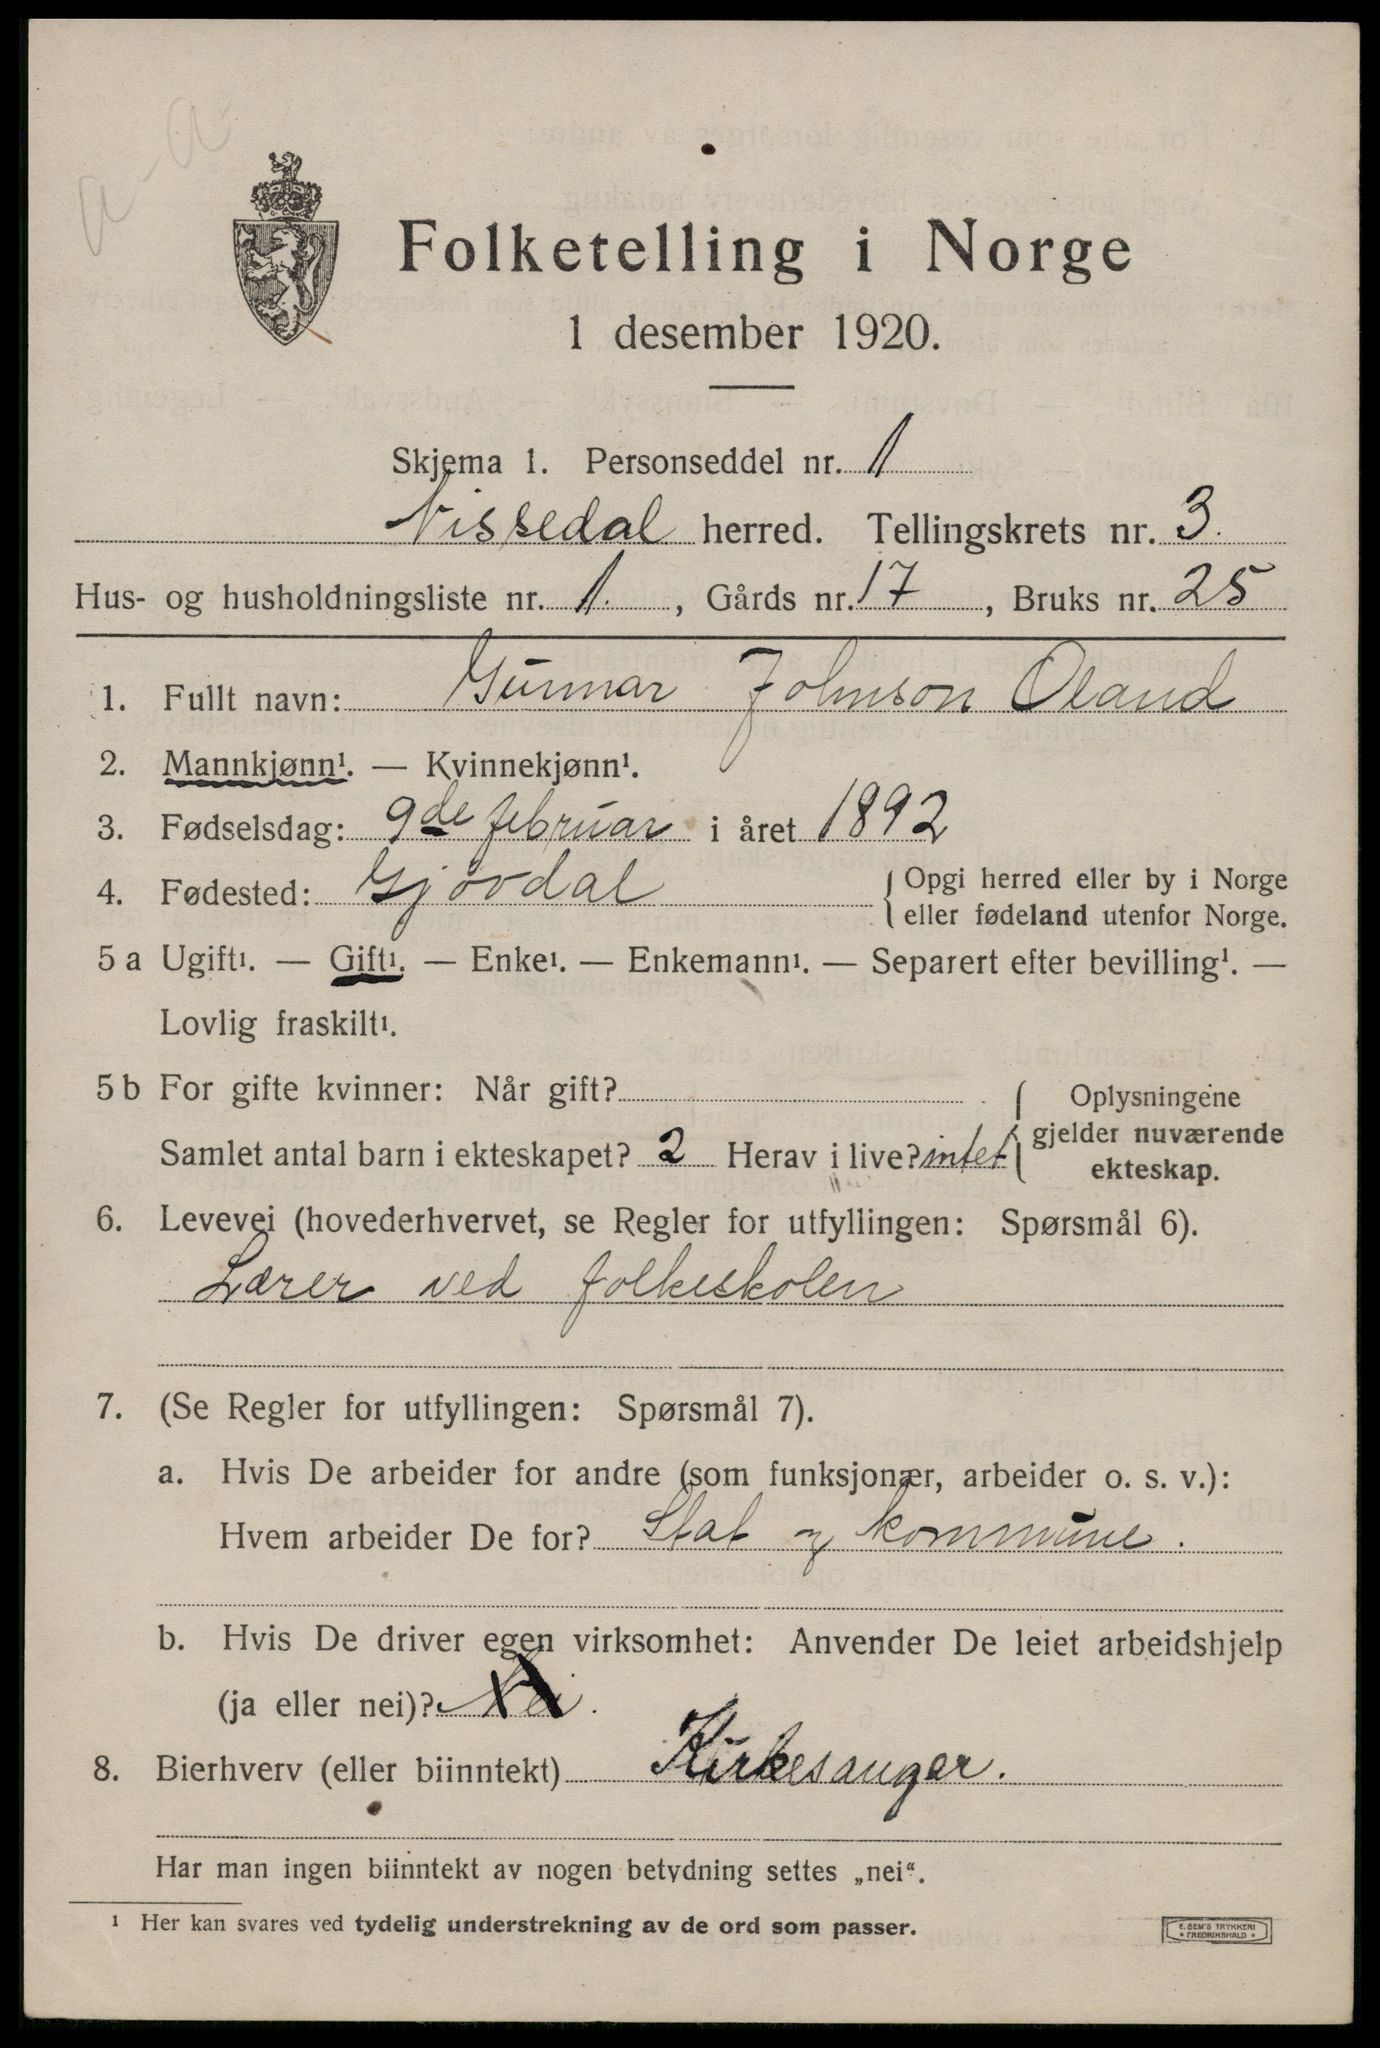 a-a
Folketelling i Norge
1 desember 1920.
Skjema 1. Personseddel nr. 1
Nissedal herred. Tellingskrets nr. 3.
Hus- og husholdningsliste nr. 1. , Gårds nr. 17 , Bruks nr. 25
1. Fullt navn: Gunnar Johnson Øland
2. Mannkjønn¹. — Kvinnekjønn¹.
3. Fødselsdag: 9de februar i året 1892
4. Fødested: Gjøvdal { Opgi herred eller by i Norge
eller fødeland utenfor Norge.
5a Ugift¹. — Gift¹. — Enke¹. — Enkemann¹. — Separert efter bevilling¹. —
Lovlig fraskilt¹.
5b For gifte kvinner: Når gift? { Oplysningene
gjelder nuværende
ekteskap.
Samlet antal barn i ekteskapet? 2 Herav i live? intet
6. Levevei (hovederhvervet, se Regler for utfyllingen: Spørsmål 6).
Lærer ved folkeskolen
7. (Se Regler for utfyllingen: Spørsmål 7).
a. Hvis De arbeider for andre (som funksjonær, arbeider o. s. v.):
Hvem arbeider De for? Stat og kommune.
b. Hvis De driver egen virksomhet: Anvender De leiet arbeidshjelp
(ja eller nei)? Nei.
8. Bierhverv (eller biinntekt) Kirkesanger.
Har man ingen biinntekt av nogen betydning settes „nei“.
¹ Her kan svares ved tydelig understrekning av de ord som passer.
E. SEM'S TRYKKERI
• FREDRIKSHALD •